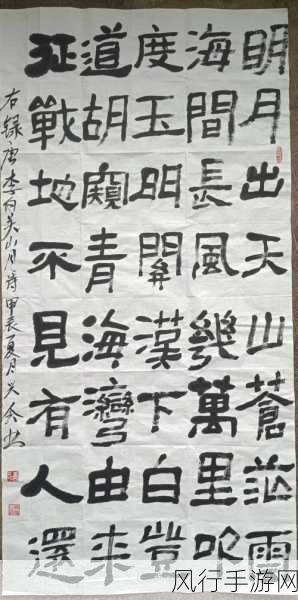 明月出天山蒼茫雲
海間長風幾萬里吹
度玉門關漢下白登
道胡窺青海灣由來
征戰地不見有人還
右録唐李白关山月诗甲辰夏月
风行手游网